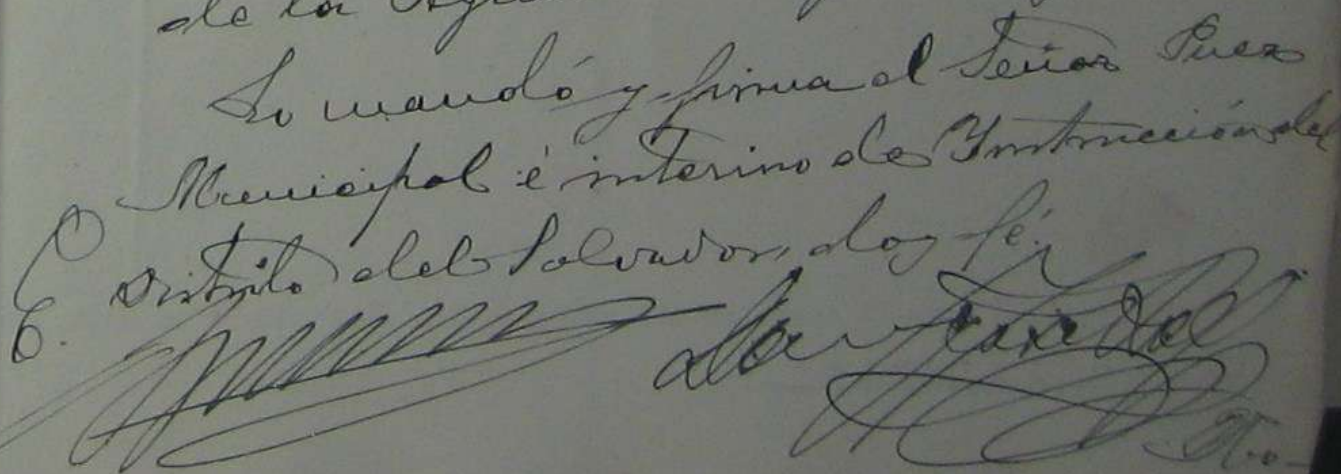 de la
Lo mandó y firma el Señor Juez
Municipal é interino de Ynstrucción del
Distrito del Salvador, doy fé.